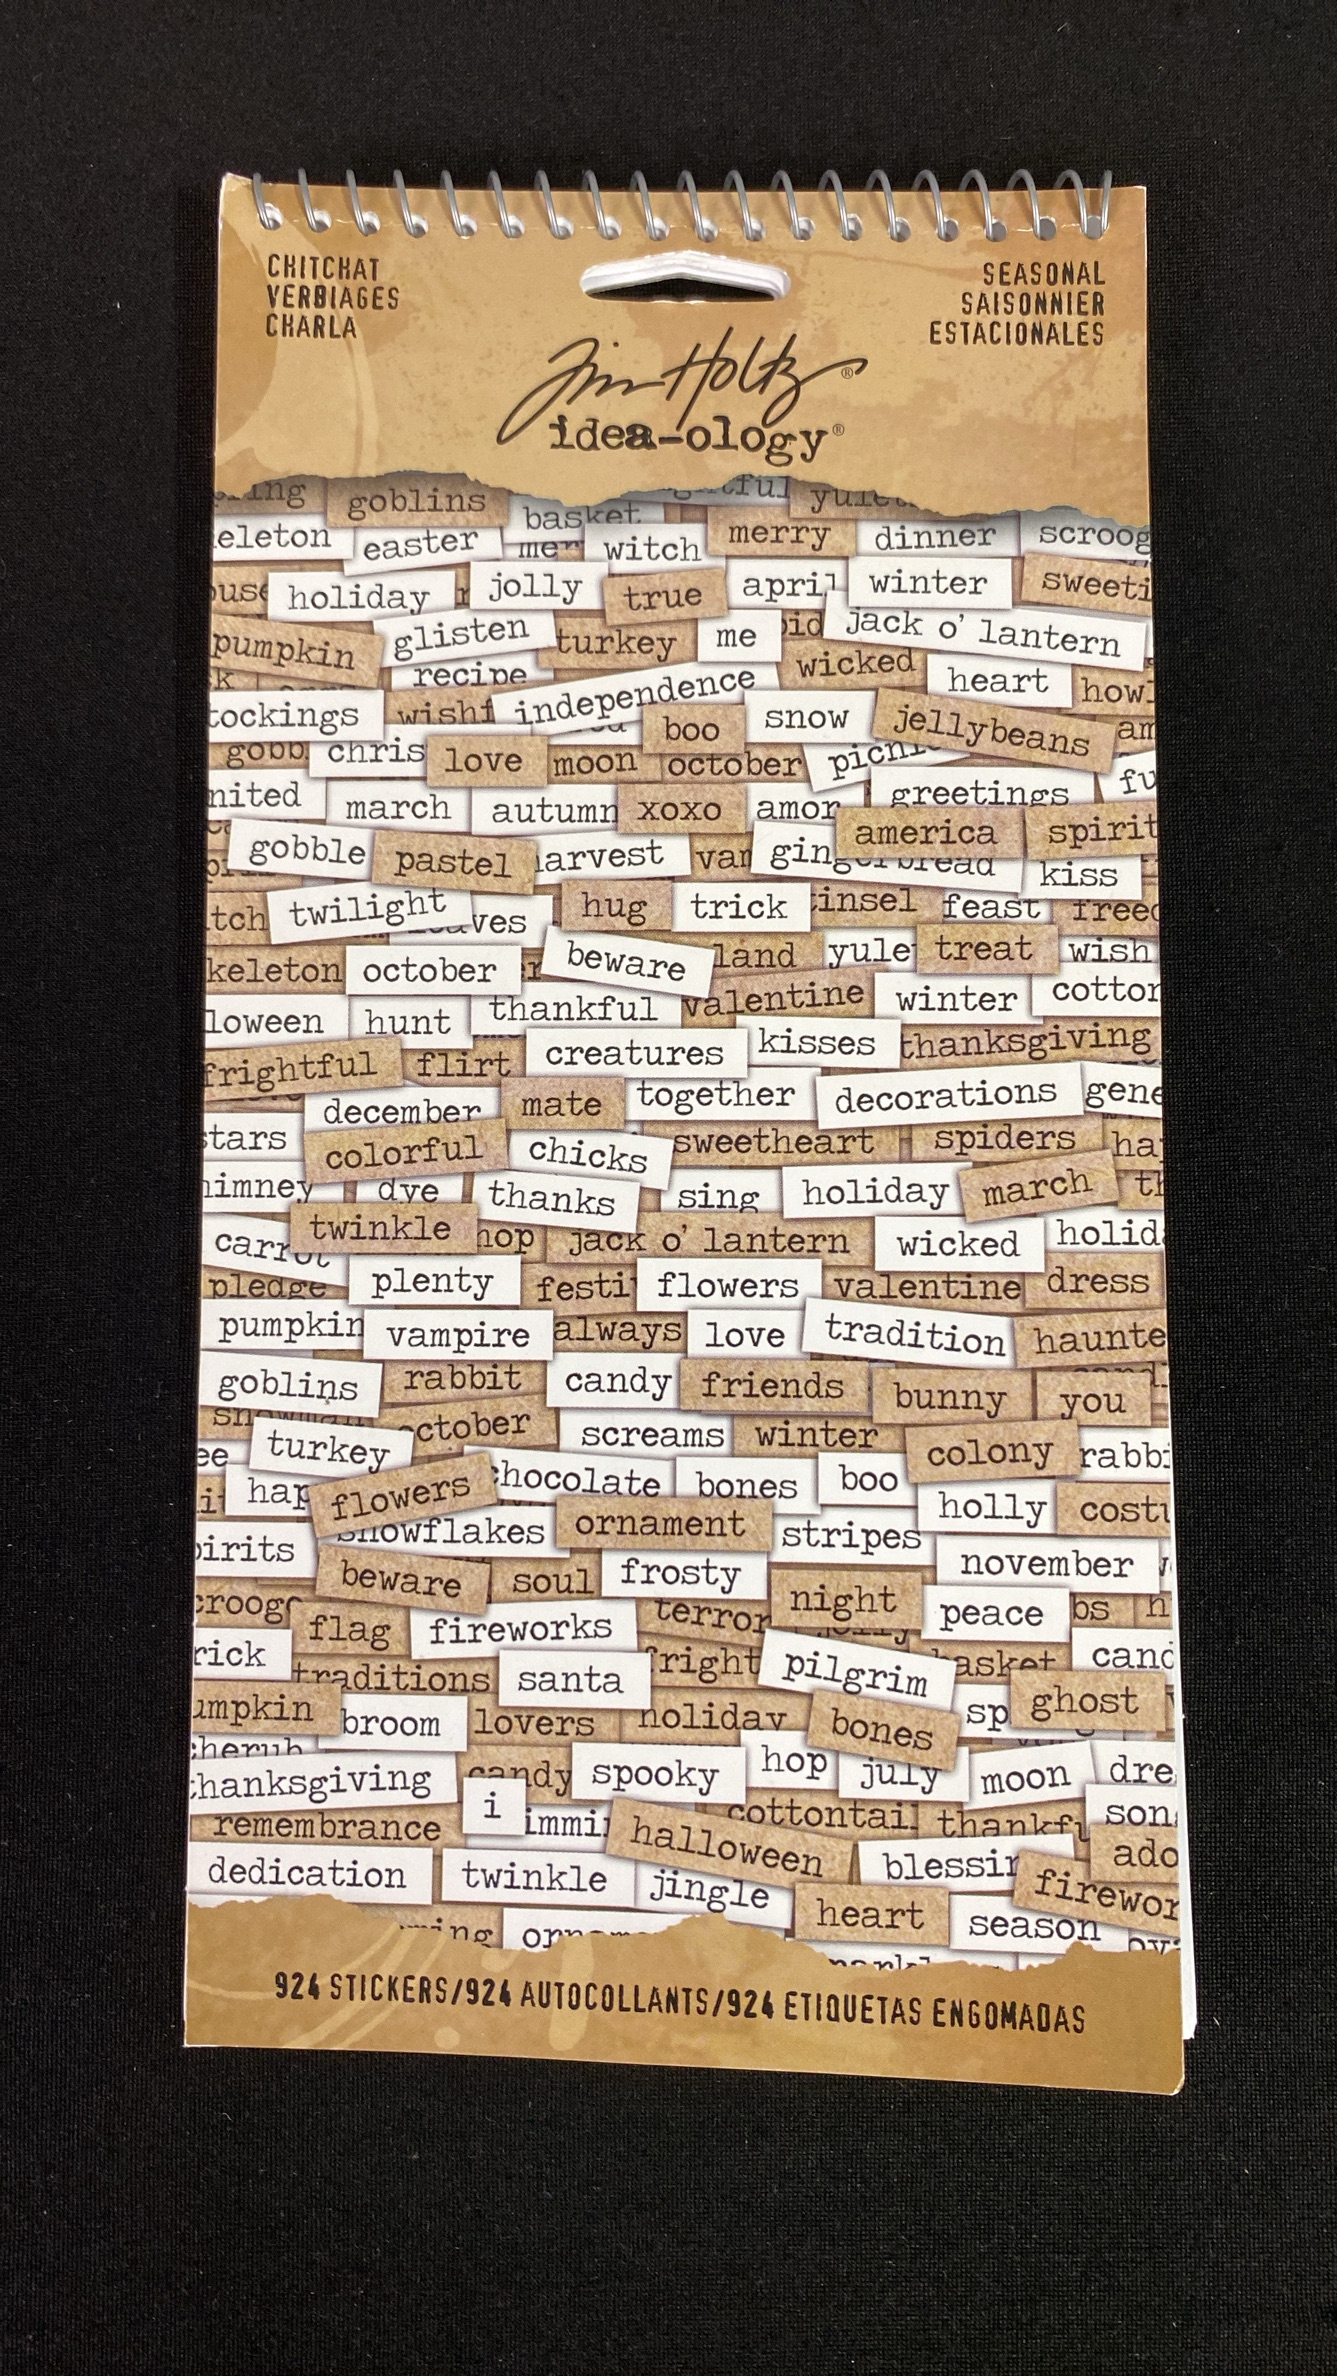 CHITCHAT
VERBIAGES
CHARLA
SEASONAL
SAISONNIER
ESTACIONALES
Tim Holtz®
idea-ology®
goblins
basket
eleton easter witch merry dinner scroog
holiday jolly true april winter sweeti
pumpkin glisten turkey me jack o' lantern
recipe independence wicked heart how
tockings wishf boo snow jellybeans am
gobb chris love moon october picni fu
nited march autumn xoxo amor greetings
gobble pastel arvest van gingerbread america spirit
kiss
tch twilight ves hug trick tinsel feast freed
keleton october beware land yule treat wish
loween hunt thankful valentine winter cotton
frightful flirt creatures kisses thanksgiving
december mate together decorations gene
stars colorful chicks sweetheart spiders ha
himney dye thanks sing holiday march th
carrot twinkle hop jack o' lantern wicked holid
pledge plenty festi flowers valentine dress
pumpkin vampire always love tradition haunte
goblins rabbit candy friends bunny you
snowman turkey october screams winter colony rabbi
ee hap flowers chocolate bones boo holly costu
snowflakes ornament stripes
pirits beware soul frosty november
croog flag fireworks terror night peace bs h
rick traditions santa fright pilgrim basket cand
umpkin broom lovers holiday bones sp ghost
cherub
thanksgiving candy spooky hop july moon dre
remembrance i immi halloween cottontail thankfu son
dedication twinkle jingle blessin ado
heart season firewor
ing
924 STICKERS/924 AUTOCOLLANTS/924 ETIQUETAS ENGOMADAS